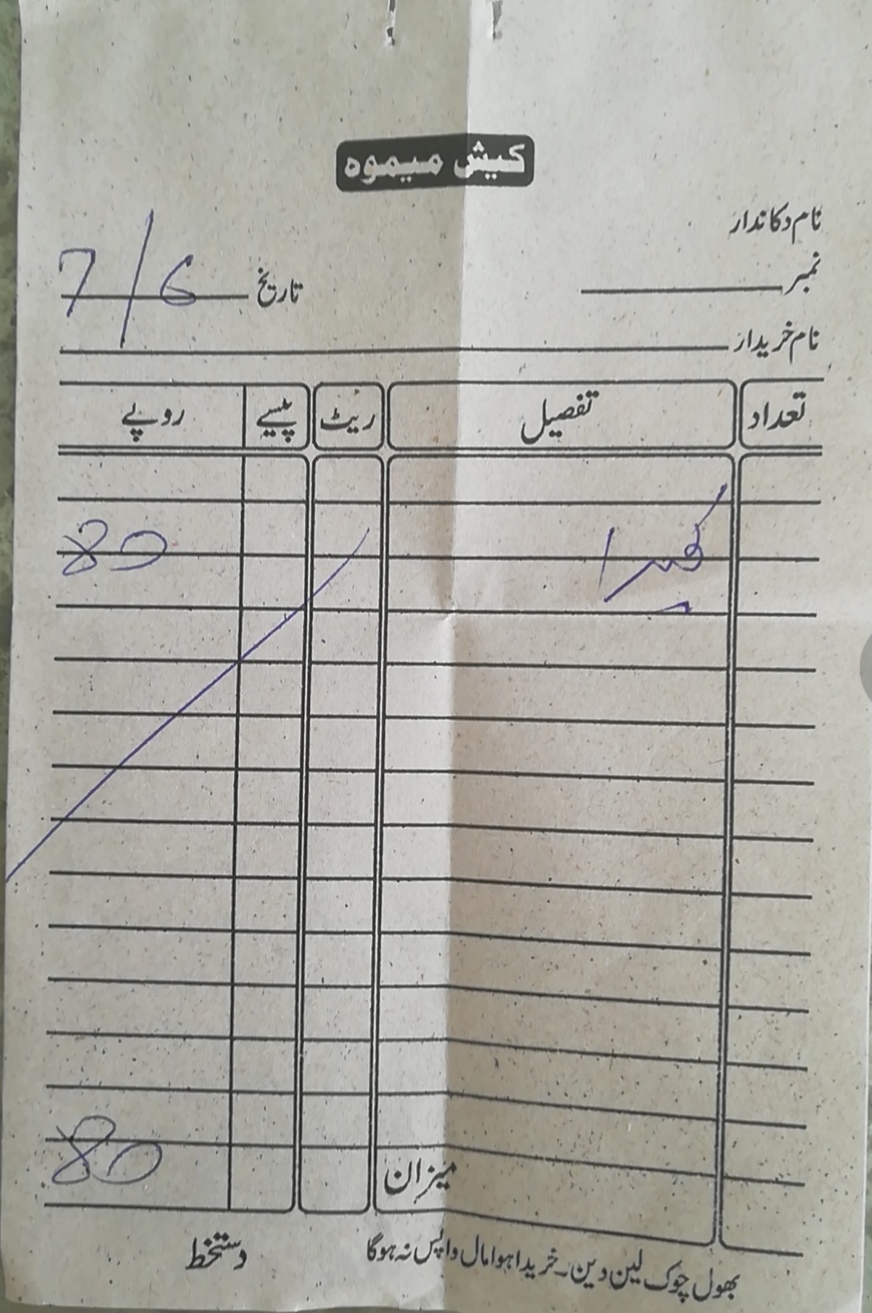 کیش میمو
نام دکاندار
نمبر
تاریخ 7/6
نام خریدار
تعداد تفصیل ریٹ پیسے روپے
کھیرا 80
میزان 80
بھول چوک لین دین۔ خریدا ہوا مال واپس نہ ہوگا
دستخط